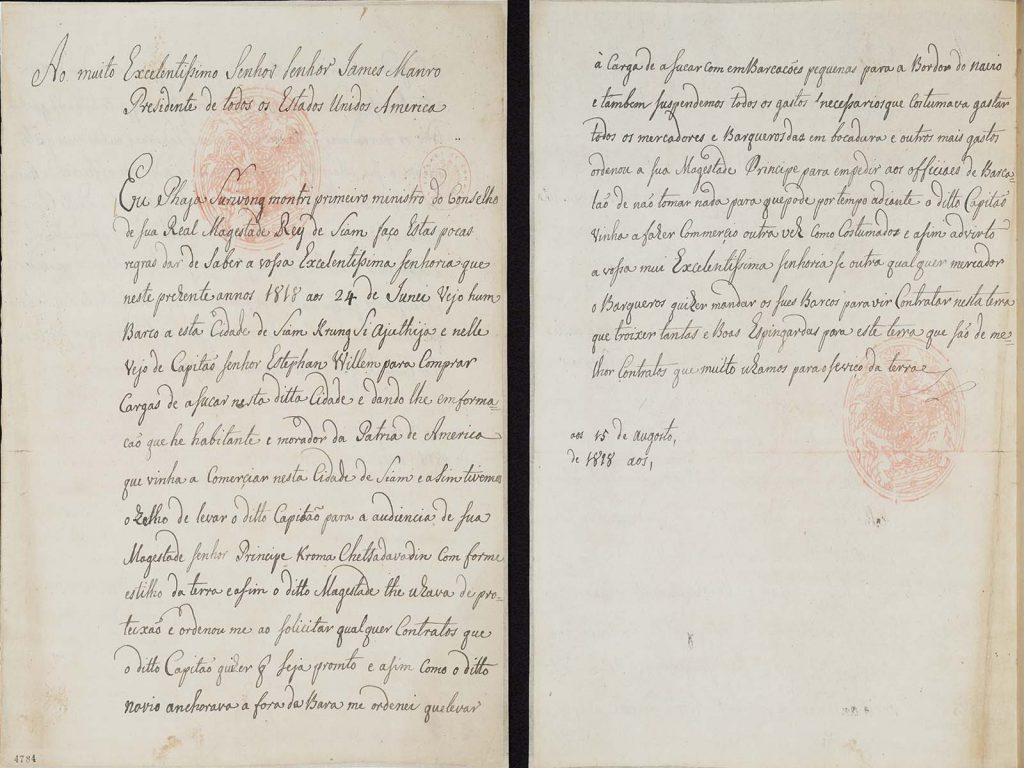 Ao muito Excelentissimo Senhor Senhor James Manro
Presidente de todos os Estados Unidos America
Eu Phaja Surivong montri primeiro ministro do Conselho
de sua Real Magestade Rey de Siam faço Estas pocas
regras dar de Saber a vossa Excelentissima senhoria que
neste prezente annos 1818 aos 24 de Junei Vejo hum
Barco a esta Cidade de Siam Krung Si ajuthija e nelle
Vejo de Capitão senhor Estephan Willem para Comprar
Cargas de asucar nesta ditta Cidade e dando lhe emforma=
caõ que he habitante e morador da Patria de America
que vinha a Comerciar nesta Cidade de Siam e asim tivemos
o Zelho de levar o ditto Capitaõ para a audiencia de sua
Magestade senhor Principe Kroma Chetsadavadin Com forme
estilho da terra e asim o ditto Magestade lhe uzava de pro=
teixaõ e ordenou me ao solicitar qualquer Contratos que
o ditto Capitaõ quizer seja promto e asim como o ditto
navio anchorava a fora da Bara me ordenei que levar
4784
à Carga de asucar com emBarcacões pequenas para a Bordor do navio
e tambem suspendemos todos os gastos necessarios que Costumava gastar
todos os mercadores e Barqueros das em bocadura e outros mais gastos
ordenou a sua Magestade Principe para empedir aos officiaes de Barca=
laõ de naõ tomar nada para que pode por tempo adiante o ditto Capitaõ
vinha a fazer Commerço outra vez como Costumados e asim advirto
a vossa mui Excelentissima senhoria se outra qualquer mercador
o Barqueros quizer mandar os sues Barcos para vir Contratar nesta terra
que troixer tantas e Boas Espingardas para este terra que saõ de me=
lhor Contratos que muito uzamos para o seviço da terra
aos 15 de augosto,
de 1818 aos,